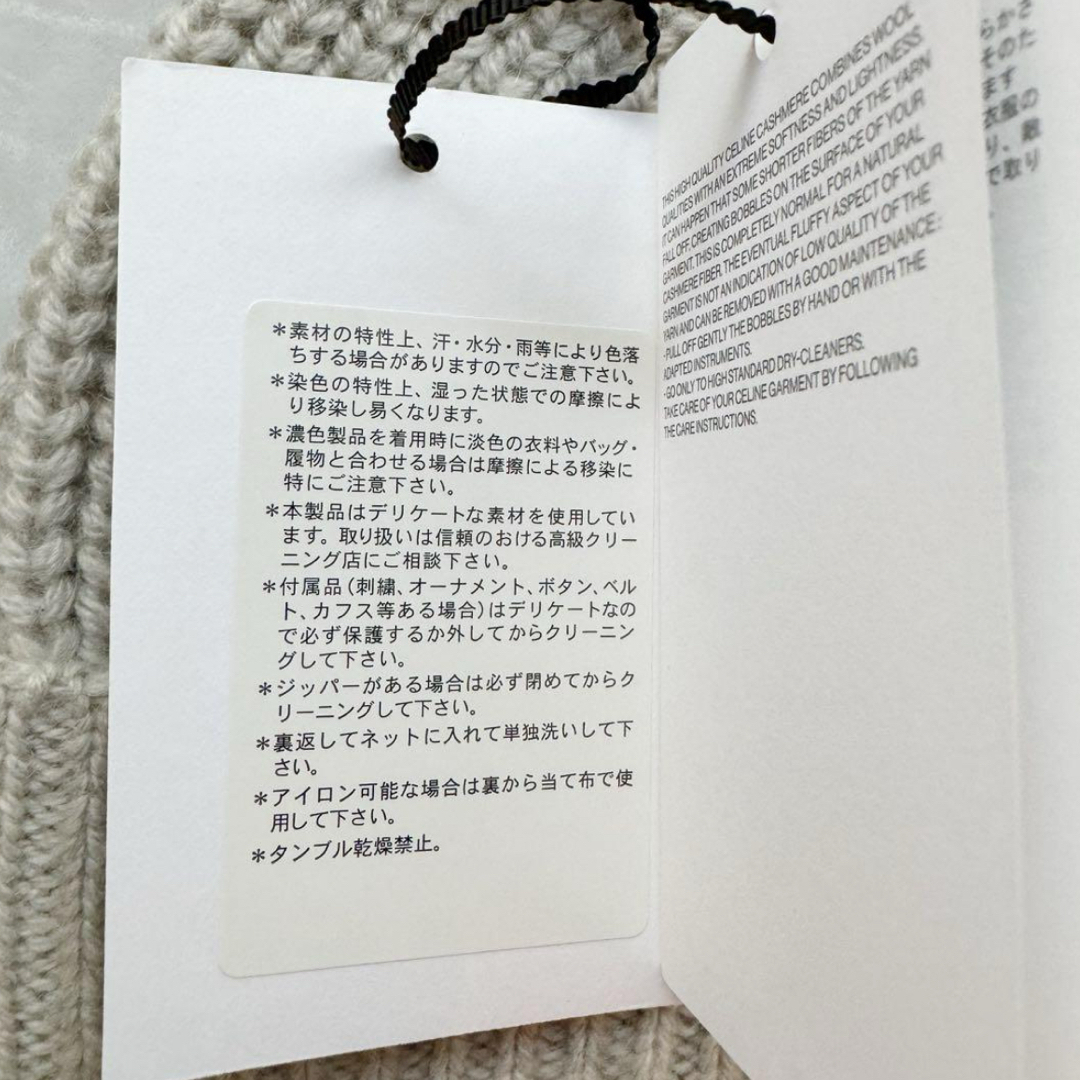 *素材の特性上、汗・水分・雨等により色落
ちする場合がありますのでご注意下さい。
*染色の特性上、湿った状態での摩擦によ
り移染し易くなります。
*濃色製品を着用時に淡色の衣料やバッグ・
履物と合わせる場合は摩擦による移染に
特にご注意下さい。
*本製品はデリケートな素材を使用してい
ます。取り扱いは信頼のおける高級クリー
ニング店にご相談下さい。
*付属品(刺繍、オーナメント、ボタン、ベル
ト、カフス等ある場合)はデリケートなの
で必ず保護するか外してからクリーニン
グして下さい。
*ジッパーがある場合は必ず閉めてからク
リーニングして下さい。
*裏返してネットに入れて単独洗いして下
さい。
*アイロン可能な場合は裏から当て布で使
用して下さい。
*タンブル乾燥禁止。
THIS HIGH QUALITY CELINE CASHMERE COMBINES WOOL
QUALITIES WITH AN EXTREME SOFTNESS AND LIGHTNESS.
IT CAN HAPPEN THAT SOME SHORTER FIBERS OF THE YARN
FALL OFF, CREATING BOBBLES ON THE SURFACE OF YOUR
GARMENT. THIS IS COMPLETELY NORMAL FOR A NATURAL
CASHMERE FIBER. THE EVENTUAL FLUFFY ASPECT OF YOUR
GARMENT IS NOT AN INDICATION OF LOW QUALITY OF THE
YARN AND CAN BE REMOVED WITH A GOOD MAINTENANCE:
- PULL OFF GENTLY THE BOBBLES BY HAND OR WITH THE
ADAPTED INSTRUMENTS.
- GO ONLY TO HIGH STANDARD DRY-CLEANERS.
TAKE CARE OF YOUR CELINE GARMENT BY FOLLOWING
THE CARE INSTRUCTIONS.
さ
らか
そのた
ます
衣服の
り、
で取り